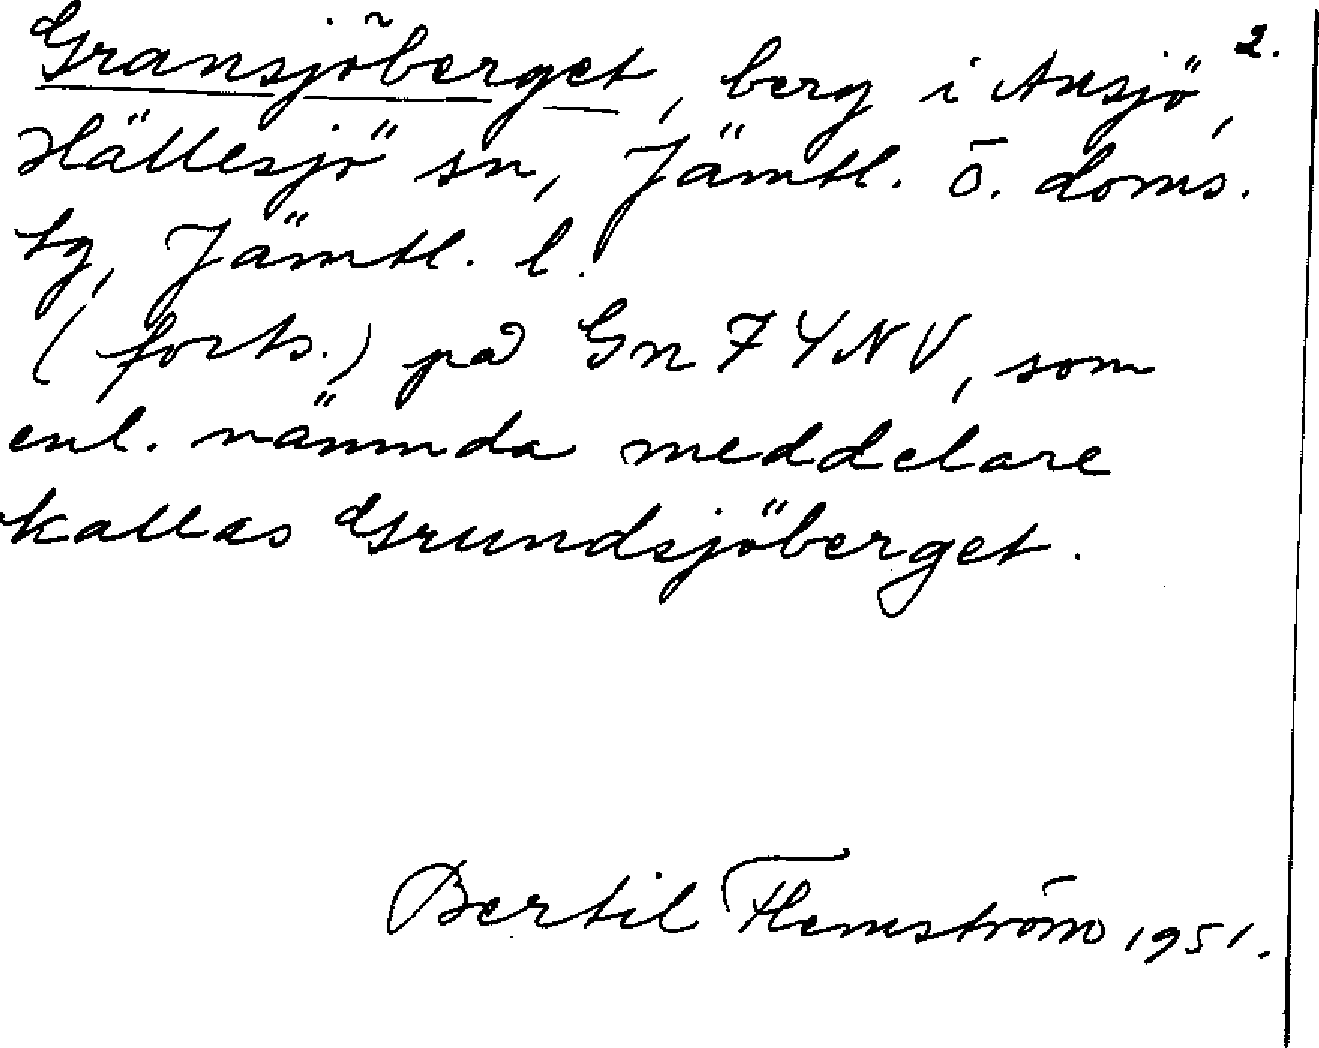 Gransjöberget, berg i Ansjö, 2.
Hällesjö sn, Jämtl. ö. doms.
tg, Jämtl. l.
(forts.) på Gn 7 Y NV, som
enl. nämnda meddelare
kallas Grundsjöberget.
Bertil Flemström 1951.